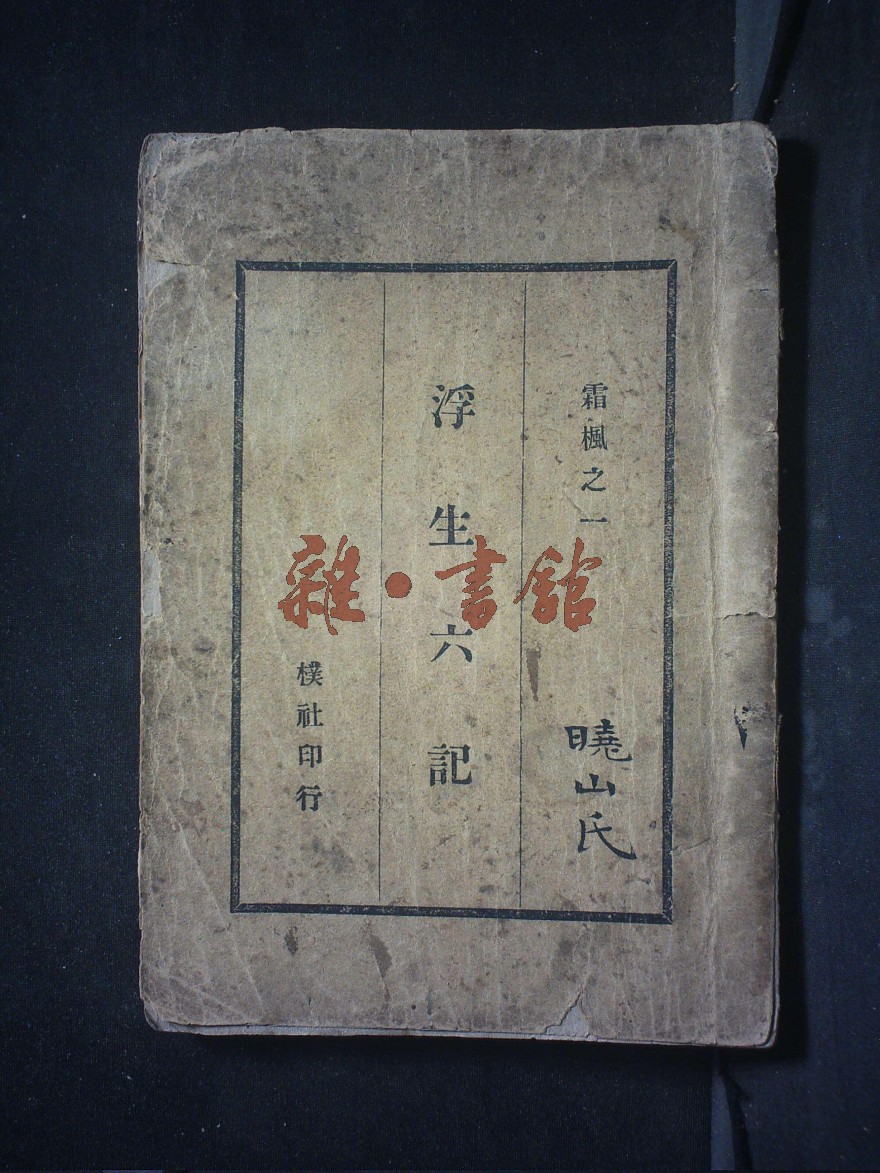 霜楓之一
曉山氏
浮生六記
樸社印行
雜·書館